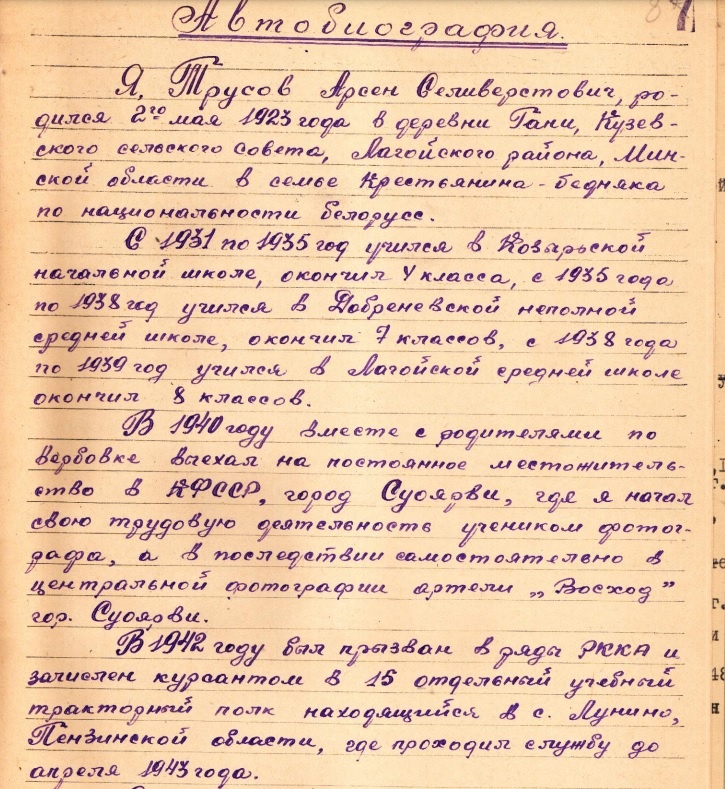 Автобиография.
Я, Трусов Арсен Селиверстович, ро-
дился 2го мая 1923 года в деревни Гани, Кузев-
ского сельского совета, Лагойского района, Мин-
ской области в семье Крестьянина-бедняка
по национальности белорусс.
С 1931 по 1935 год учился в Козырьской
начальной школе, окончил 4 класса, с 1935 года
по 1938 год учился в Добреневской неполной
средней школе, окончил 7 классов, с 1938 года
по 1939 год учился в Лагойской средней школе
окончил 8 классов.
В 1940 году вместе с родителями по
вербовке выехал на постоянное местожитель-
ство в КФССР, город Суоярви, где я начал
свою трудовую деятельность учеником фотог-
рафа, а в последствии самостоятельно в
центральной фотографии артели „Восход”
гор. Суоярви.
В 1942 году был прызван в ряды РККА и
зачислен курсантом в 15 отдельный учебный
тракторный полк находящийся в с. Лунино,
Пензинской области, где проходил службу до
апреля 1943 года.